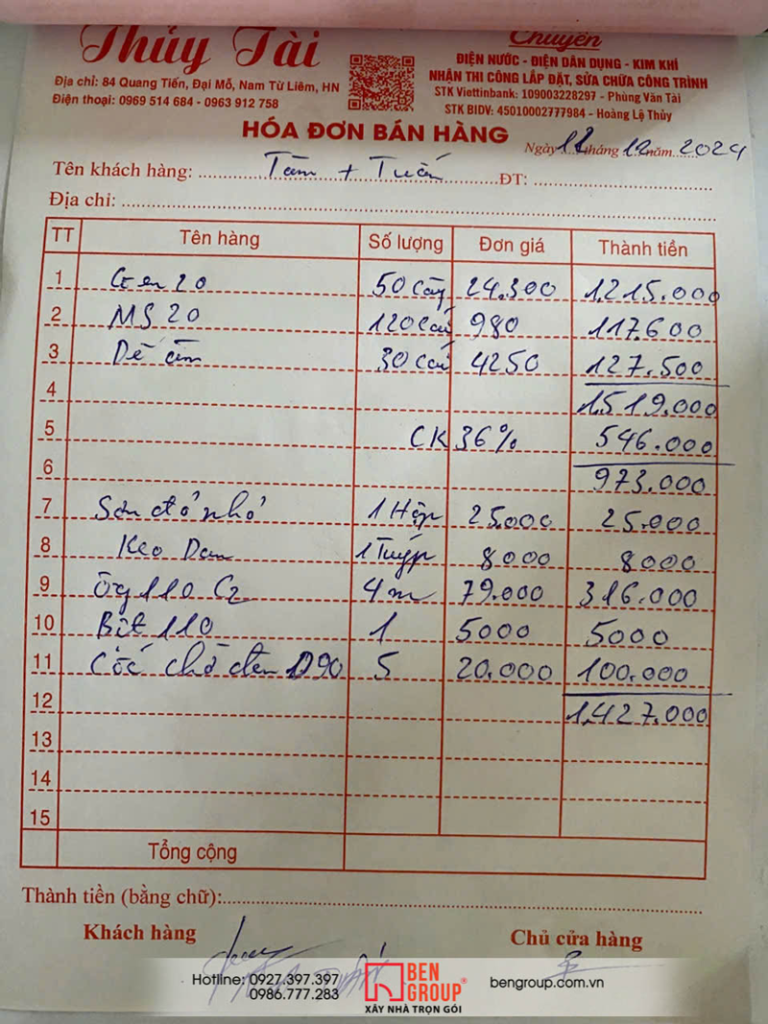 Thủy Tài
Chuyên
ĐIỆN NƯỚC - ĐIỆN DÂN DỤNG - KIM KHÍ
NHẬN THI CÔNG LẮP ĐẶT, SỬA CHỮA CÔNG TRÌNH
Địa chỉ: 84 Quang Tiến, Đại Mỗ, Nam Từ Liêm, HN
Điện thoại: 0969 514 684 - 0963 912 758
STK Viettinbank: 109003228297 - Phùng Văn Tài
STK BIDV: 45010002777984 - Hoàng Lệ Thủy
HÓA ĐƠN BÁN HÀNG
Ngày 11 tháng 12 năm 2024
Tên khách hàng: Tâm + Tuấn ĐT:
Địa chỉ:
TT Tên hàng Số lượng Đơn giá Thành tiền
1 Gen 20 50 cây 24.300 1.215.000
2 MS 20 120 cái 980 117.600
3 Dế âm 30 cái 4250 127.500
4 1.519.000
5 CK 36% 546.000
6 973.000
7 Sơn đỏ nhỏ 1 Hộp 25.000 25.000
8 Keo Dán 1 Tuýp 8000 8000
9 Ống 110 C2 4m 79.000 316.000
10 Bịt 110 1 5000 5000
11 Cốc chờ đèn D90 5 20.000 100.000
12 1.427.000
13
14
15
Tổng cộng
Thành tiền (bằng chữ):
Khách hàng Chủ cửa hàng
Hotline: 0927.397.397
0986.777.283
BEN GROUP®
XÂY NHÀ TRỌN GÓI
bengroup.com.vn